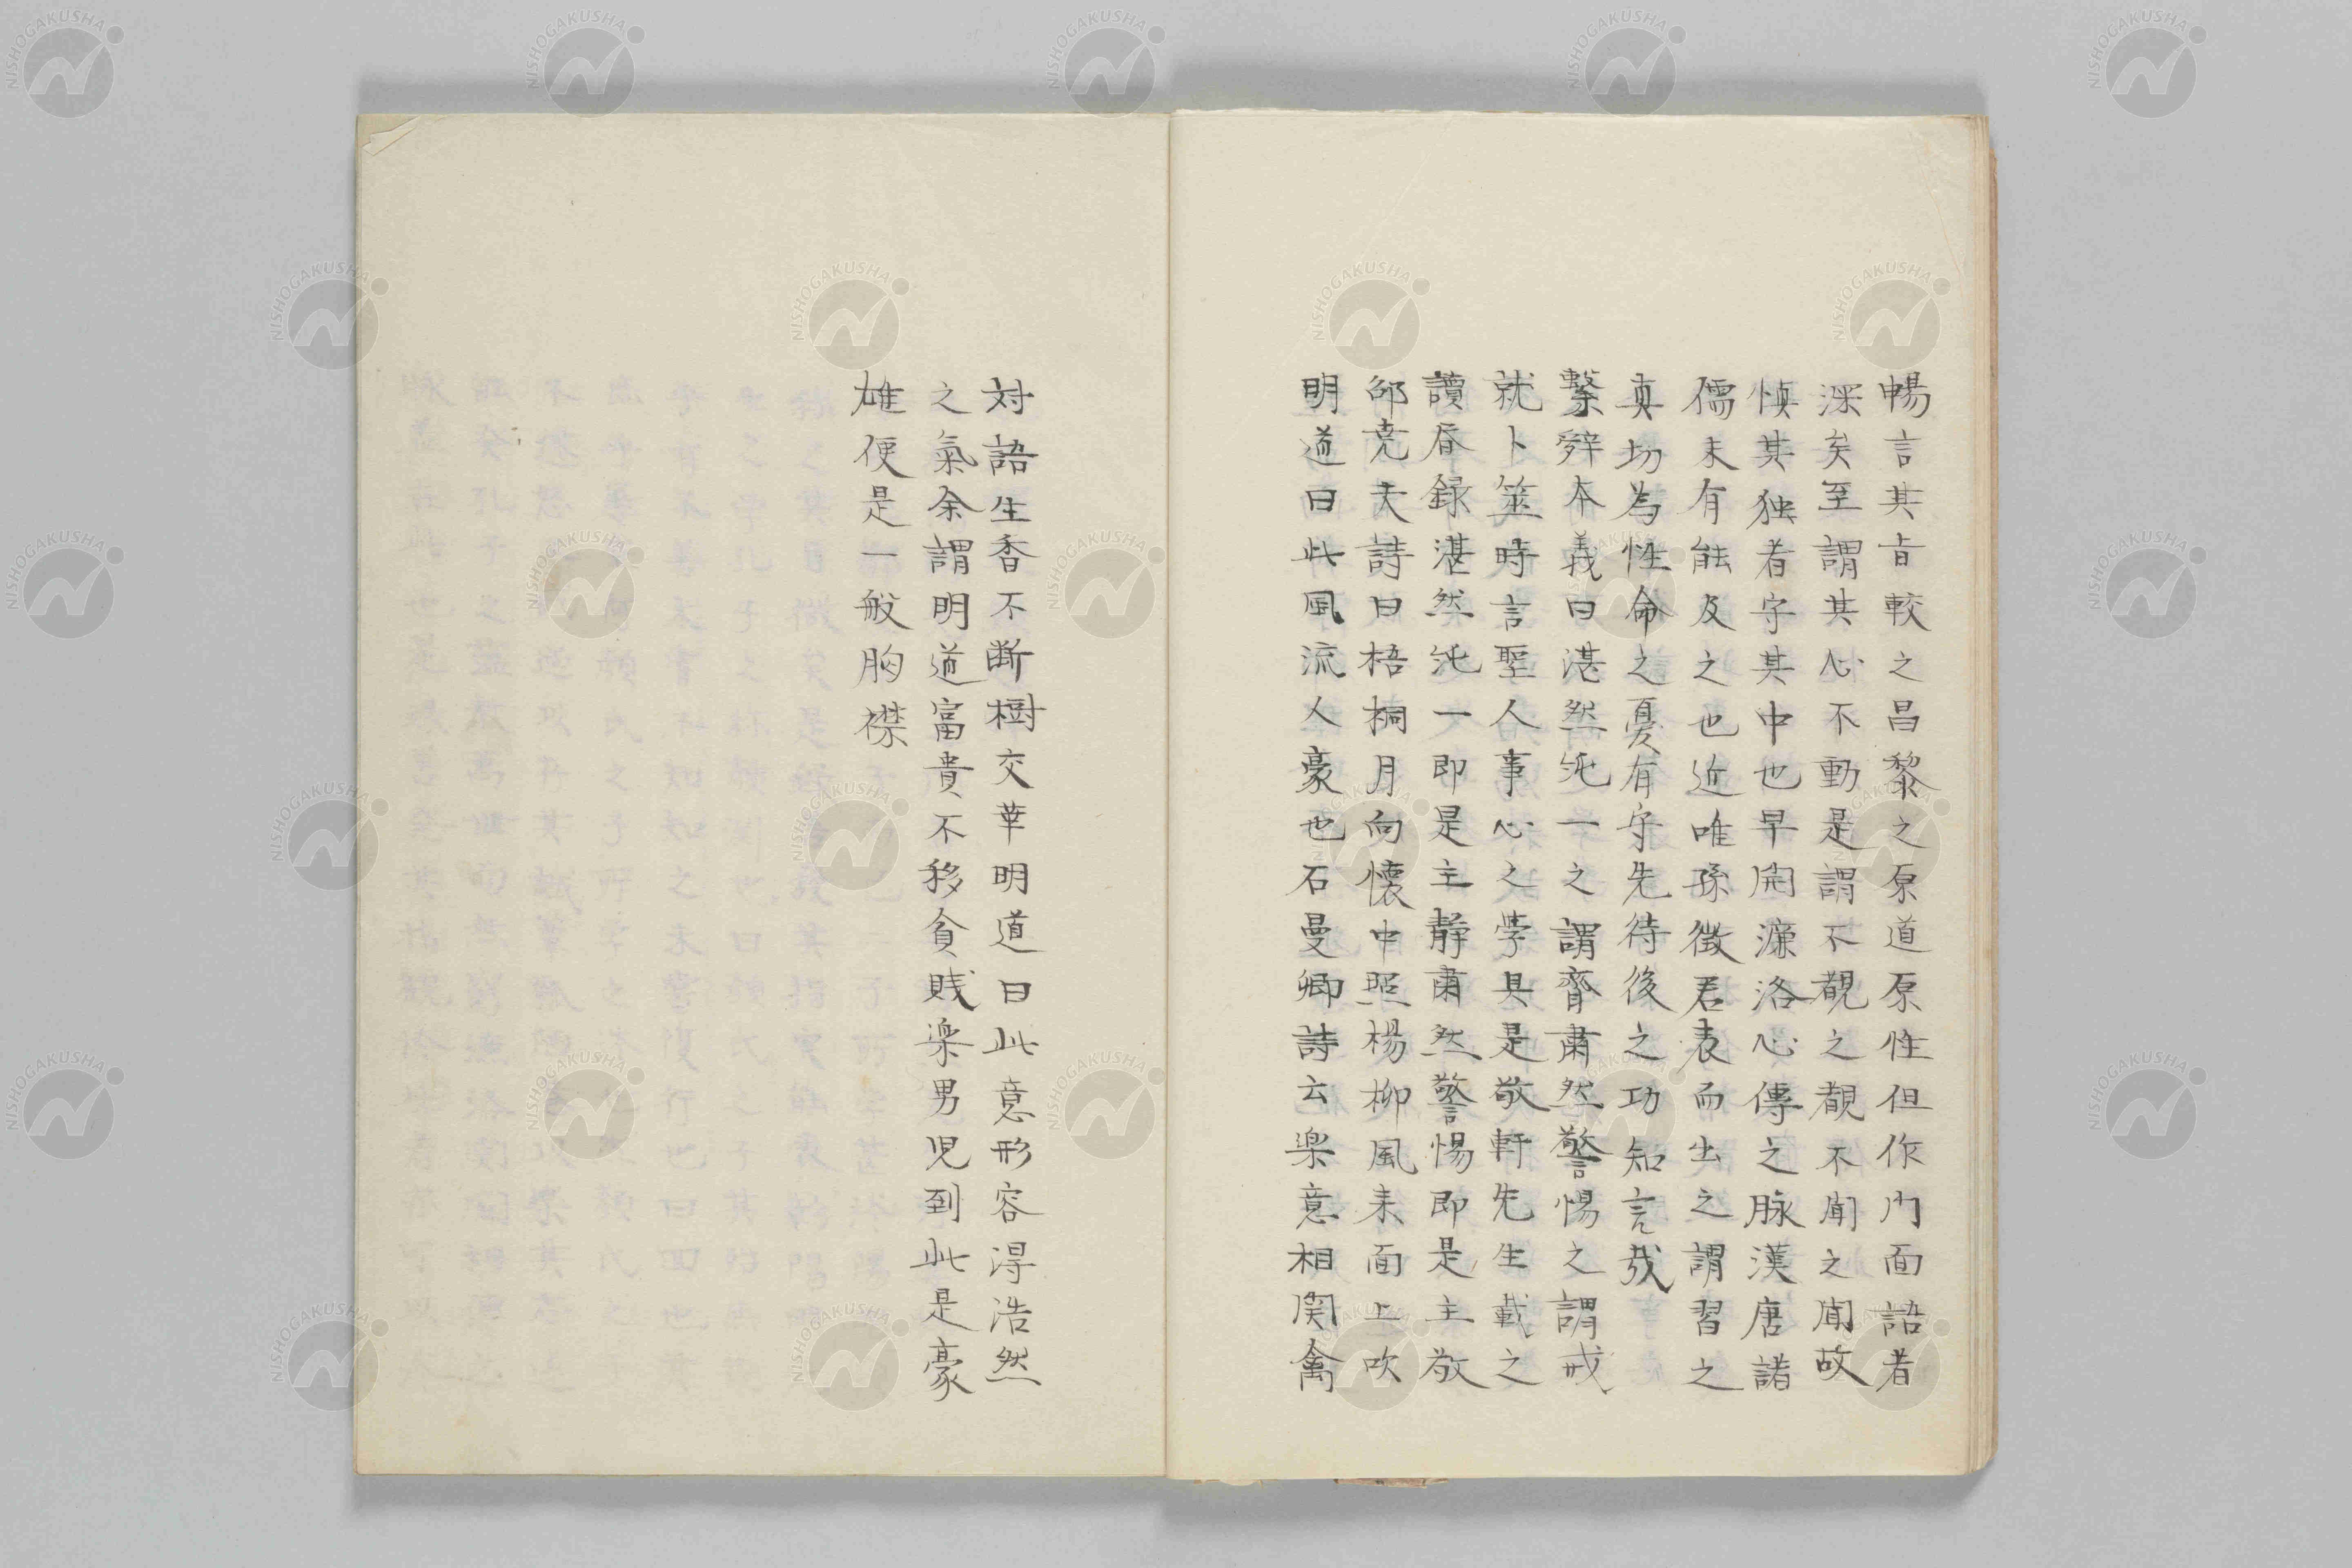 暢言其旨較之昌黎之原道原性但作門面語者
深矣至謂其心不動是謂不覩之覩不聞之聞故
慎其独者守其中也早開濂洛心傳之脉漢唐諸
儒未有能及之也近唯孫徴君表而出之謂習之
真切為性命之憂有守先待後之功知言哉
繋辞本義曰湛然純一之謂齊肅然警惕之謂戒
就卜筮時言聖人事心之学具是敬軒先生載之
讀書録湛然純一即是主静肅然警惕即是主敬
邵尭夫詩曰梧桐月向懐中照楊柳風来面上吹
明道曰此風流人豪也石曼卿詩云楽意相関禽
対語生香不断樹交華明道曰此意形容得浩然
之氣余謂明道富貴不移貧賎楽男児到此是豪
雄便是一般胸襟
NISHOGAKUSHA